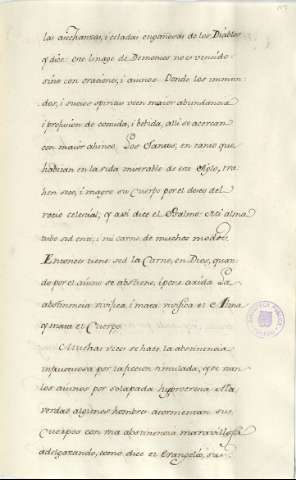 las acechanzas, i celadas engañosas de los Diablos
q̃ dice: este linage de Demonios no es vencido
sino con oraciones, i aiunos. Donde los inmun-
dos, i sucios spiritus veen maior abundancia
i profusion de comida, i bebida, alli se acercan
con maior ahinco. Los Santos, en tanto que
habitan en la vida miserable de este siglo, tra-
hen seco, i magro su Cuerpo por el deseo del
rocio celestial; q̃ asi dice el Psalmo: Mi alma
tubo sed en ti; i mi carne de muchos modos.
Entonces tiene sed la Carne, en Dios, quan-
do por el aiuno se abstiene, i por la
abstinencia vivifica, i mata: vivifica el Alma
q̃ mata el Cuerpo.
Muchas veces se hace la abstinencia
infructuosa por la simulada, q̃
los aiunos por solapada hypocresia. A la
verdad algunos hombres atormentan sus
Cuerpos con una abstinencia maravillosa
adelgazando, como dice el Evangelio, sus